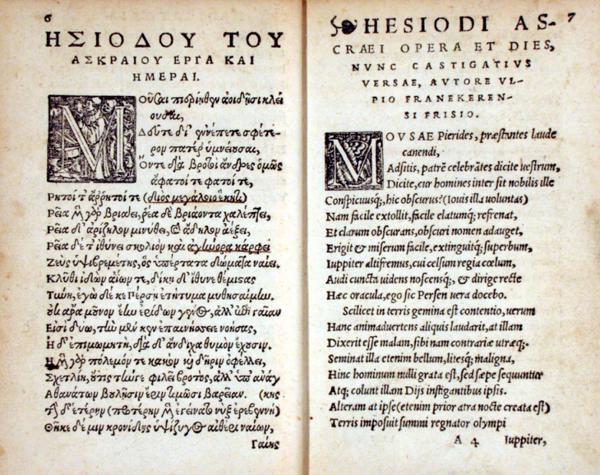 6
ΗΣΙΟΔΟΥ ΤΟΥ
ΑΣΚΡΑΙΟΥ ΕΡΓΑ ΚΑΙ
ΗΜΕΡΑΙ.
Μοῦσαι πιερίηθεν ἀοιδῇσι κλεί
ουσαι,
Δεῦτε δὴ ἐννέπετε σφέτε-
ρον πατέρ' ὑμνείουσαι,
Ὅντε διὰ βροτοὶ ἄνδρες ὁμῶς
ἄφατοί τε φατοί τε,
Ρητοί τ' ἄρρητοί τε (διὸς μεγάλοιο ἕκητι)
Ρεῖα μὲν γὰρ βριάει, ῥέα δὲ βριάοντα χαλέπτει,
Ρεῖα δ' ἀρίζηλον μινύθει, καὶ ἄδηλον ἀέξει,
Ρεῖα δέ τ' ἰθύνει σκολιὸν καὶ ἀγήνορα κάρφει
Ζεὺς ὑψιβρεμέτης, ὃς ὑπέρτατα δώματα ναίει.
Κλῦθι ἰδὼν ἀΐων τε, δίκῃ δ' ἴθυνε θέμιστας
Τύνη, ἐγὼ δέ κε Πέρσῃ ἐτήτυμα μυθησαίμην.
Οὐκ ἄρα μοῦνον ἔην ἐρίδων γένος, ἀλλ' ἐπὶ γαῖαν
Εἰσὶ δύω, τὴν μέν κεν ἐπαινήσειε νοήσας,
Ἡ δ' ἐπιμωμητή, διὰ δ' ἄνδιχα θυμὸν ἔχουσιν.
Ἡ μὲν γὰρ πόλεμόν τε κακὸν καὶ δῆριν ὀφέλλει,
Σχετλίη, οὔτις τήνγε φιλεῖ βροτός, ἀλλ' ὑπ' ἀνάγ
Ἀθανάτων βουλῇσιν ἔριν τιμῶσι βαρεῖαν. (κης
Τὴν δ' ἑτέρην (προτέρην μὲν ἐγείνατο νὺξ ἐρεβεννή)
Θῆκε δέ μιν κρονίδης ὑψίζυγος αἰθέρι ναίων,
Γαίης
7
HESIODI AS-
CRAEI OPERA ET DIES,
NVNC CASTIGATIVS
VERSAE, AVTORE VL-
PIO FRANEKEREN-
SI FRISIO.
MOVSAE Pierides, præstantes laude
canendi,
Adsitis, patrē celebrātes dicite uestrum,
Dicite, cur homines inter sit nobilis ille
Conspicuusq;, hic obscurus? (Iouis illa uoluntas)
Nam facile extollit, facile elatumq; refrenat,
Et clarum obscurans, obscuri nomen adauget,
Erigit & miserum facile, extinguitq; superbum,
Iuppiter altifremus, cui celsum regia cœlum,
Audi cuncta uidens noscensq;, & dirige recte
Hæc oracula, ego sic Persen uera docebo.
Scilicet in terris gemina est contentio, uerum
Hanc animaduertens aliquis laudarit, at illam
Dixerit esse malam, sibi nam contrariæ utræq;.
Seminat illa etenim bellum, litesq; maligna,
Hinc hominum nulli grata est, sed sæpe sequuntur
Atq; colunt illam Diis instigantibus ipsis.
Alteram at ipse (etenim prior atra nocte creata est)
Terris imposuit summi regnator olympi
A 4 Iuppiter,